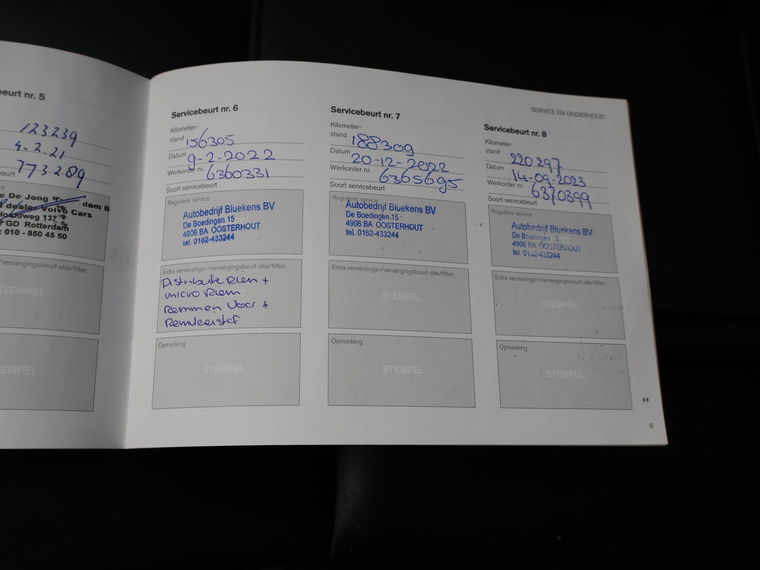 eurt nr. 5
123239
4-2-21
773289
e De Jong dam B
l dealer Volvo Cars
weg 137
GD Rotterdam
: 010 - 850 45 50
verversings-/vervangingsbeurt olie/filter:
STEMPEL
STEMPEL
Servicebeurt nr. 6
Kilometer-
stand 156305
Datum 9-2-2022
Werkorder nr. 6360331
Soort servicebeurt
Reguliere service
Autobedrijf Bluekens BV
De Boedingen 15
4906 BA OOSTERHOUT
tel. 0162-433244
Extra verversings-/vervangingsbeurt olie/filter:
Distributie Riem +
micro Riem
Remmen Voor +
Remvloeistof
Opmerking
STEMPEL
Servicebeurt nr. 7
Kilometer-
stand 188309
Datum 20-12-2022
Werkorder nr. 6365695
Soort servicebeurt
Reguliere service
Autobedrijf Bluekens BV
De Boedingen 15
4906 BA OOSTERHOUT
tel. 0162-433244
Extra verversings-/vervangingsbeurt olie/filter:
STEMPEL
Opmerking
STEMPEL
SERVICE EN ONDERHOUD
Servicebeurt nr. 8
Kilometer-
stand 220297
Datum 14-09-2023
Werkorder nr. 6370399
Soort servicebeurt
Reguliere service
Autobedrijf Bluekens BV
De Boedingen 15
4906 BA OOSTERHOUT
tel. 0162-433244
Extra verversings-/vervangingsbeurt olie/filter:
STEMPEL
Opmerking
STEMPEL
9